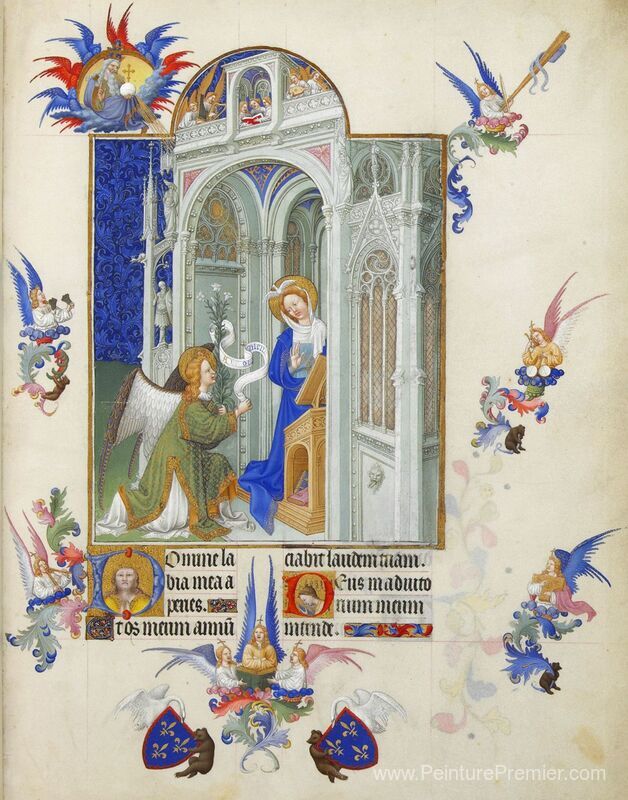 Domine la
bia mea a
peries.
Et os meum annū
ciabit laudem tuam.
Deus in adiuto
rium meum
intende.
www.PeinturePremier.com